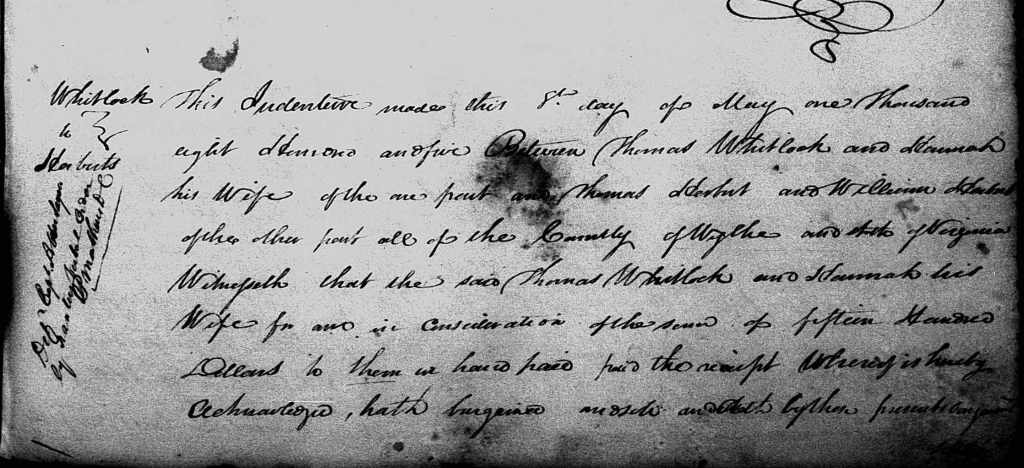 Whitlock
to
Herberts
This Indenture made this 8th day of May one Thousand
eight Hundred and five Between Thomas Whitlock and Hannah
his Wife of the one part and Thomas Herbert and William Herbert
of the other part all of the County of Wythe and state of Virginia
Witnesseth that the said Thomas Whitlock and Hannah his
Wife for and in consideration of the sum of fifteen Hundred
Dollars to them in hand paid paid the receipt Whereof is hereby
Acknowledged, hath bargained and sold and doth by these presents bargain